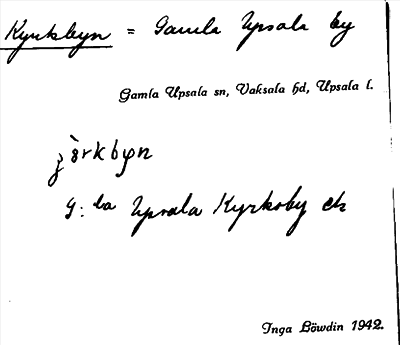 Kyrkbyn = Gamla Upsala by
Gamla Upsala sn, Vaksala hd, Upsala l.
G:la Upsala Kyrkoby ek
Inga Löwdin 1942.